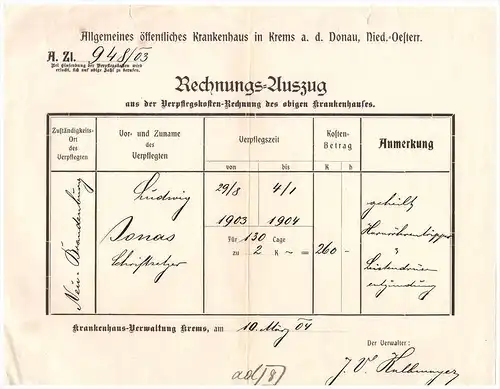 Allgemeines öffentliches Krankenhaus in Krems a. d. Donau, Nied.-Oesterr.
A. Zl. 948/03
Bei Einsendung der Verpflegskosten wird
ersucht, sich auf obige Zahl zu berufen.
Rechnungs-Auszug
aus der Verpflegskosten-Rechnung des obigen Krankenhauses.
Zuständigkeits-Ort des Verpflegten
Vor- und Zuname des Verpflegten
Verpflegszeit
von bis
Kosten-Betrag
K h
Anmerkung
Neu-Brandenburg
Ludwig
Jonas
Schriftsetzer
29/8 4/1
1903 1904
Für 130 Tage
zu 2 K ~ =
260 -
geheilt
Harnröhrentripper
u
Leistendrüsen
entzündung
Krankenhaus-Verwaltung Krems, am 10. März 04
Der Verwalter:
ad 8)